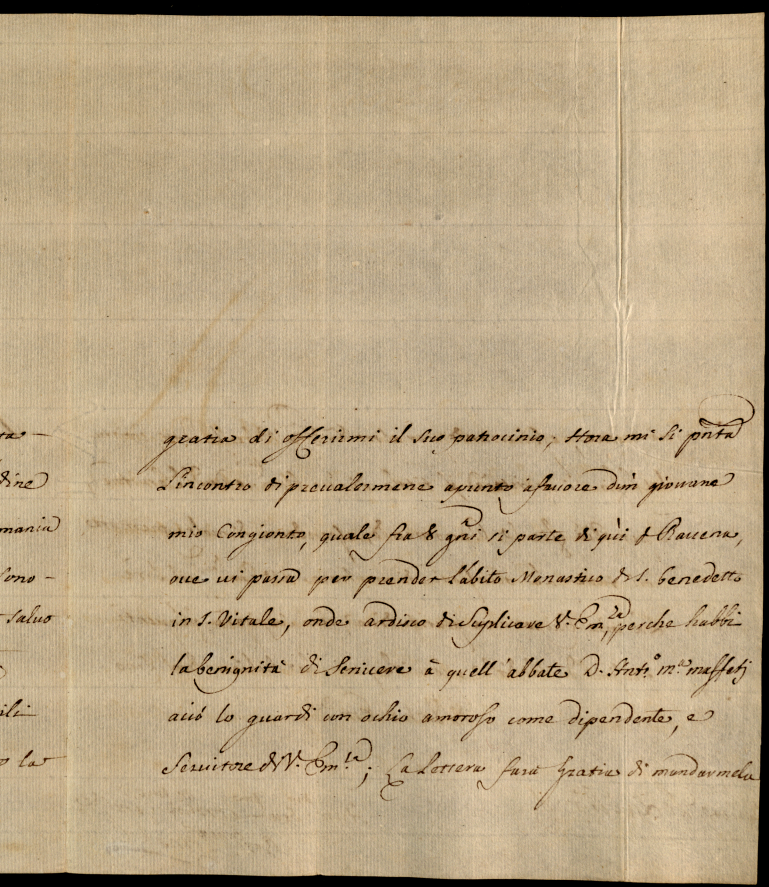 ta-
dine
mania
sono-
salvo
ili
o la
gratia di offerirmi il suo patrocinio; Hora mi si pñta
l'incontro di prevalermene apunto à favore d'un giovane
mio Congionto, quale fra 8 gñi si parte di qùi p Ravena,
ove vi passa per prender l'abito Monastico di S. benedetto
in S. Vitale, onde ardisco di Suplicare V. Em.za, perche habbi
la benignità di Scrivere à quell'abbate D. Ant.o M.a maffetj
aciò lo guardi con ochio amoroso come dipendente, e
Servitore di V. Em.za; La lettera farà gratia di mandarmela